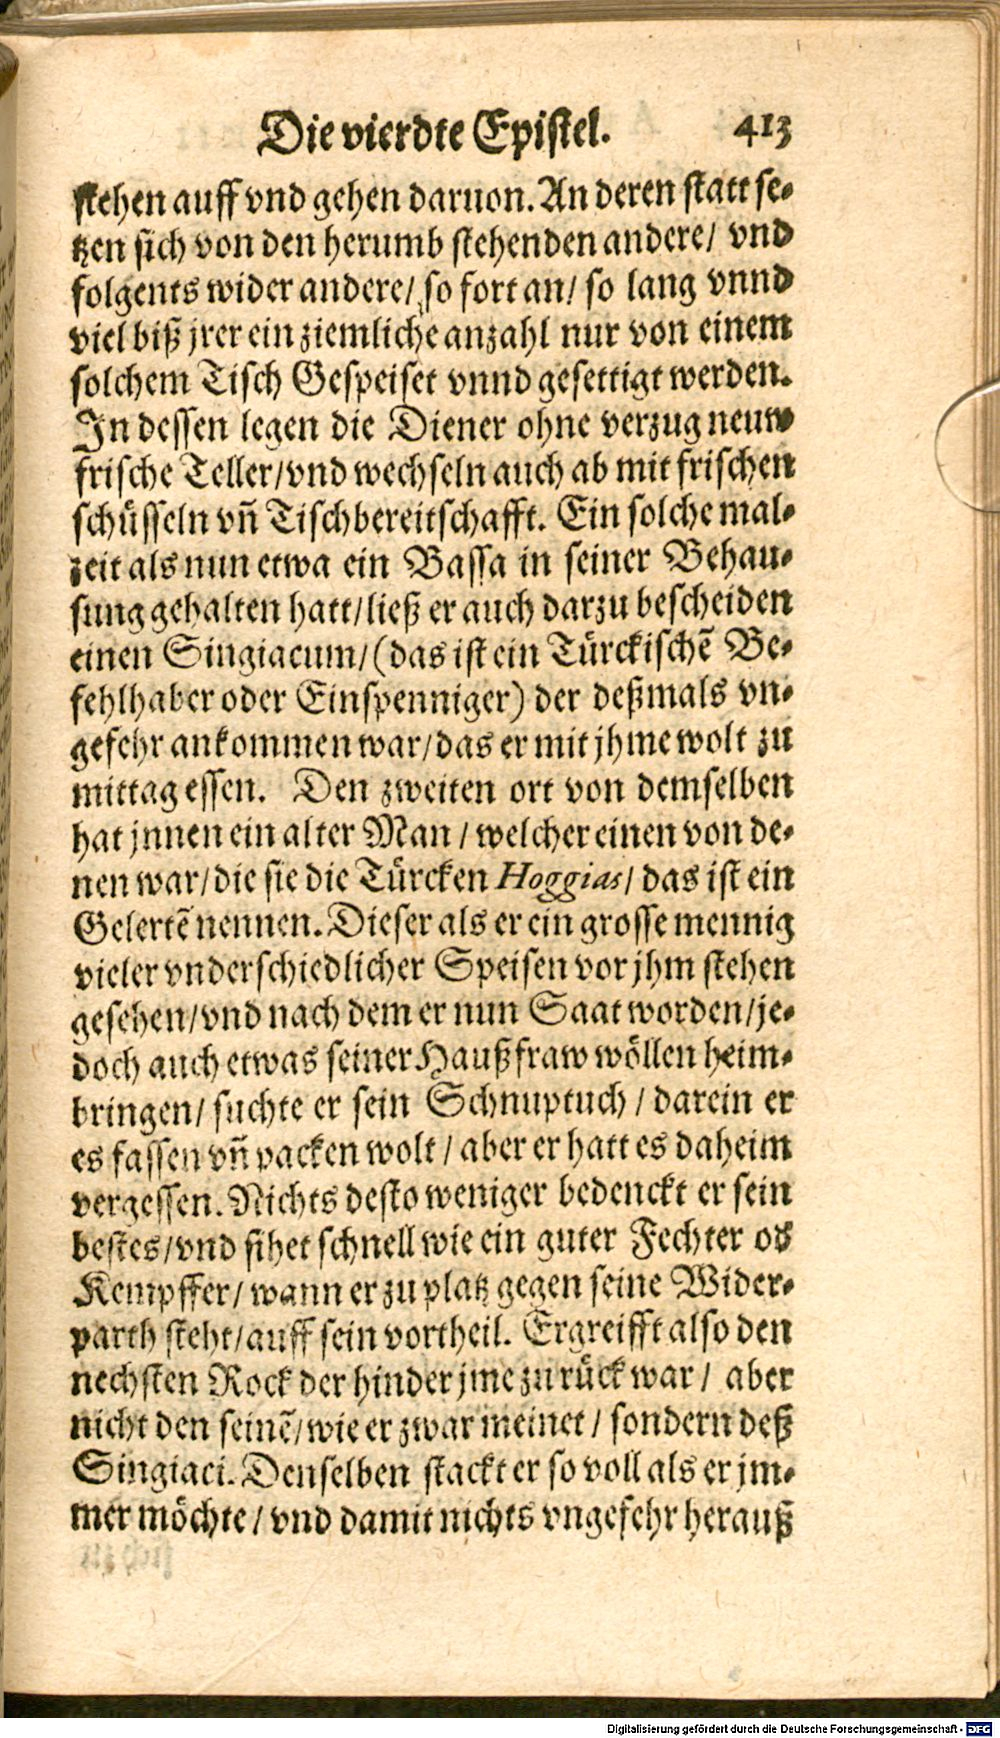 Die vierdte Epistel. 413
stehen auff vnd gehen daruon. An deren statt se-
tzen sich von den herumb stehenden andere/ vnd
folgents wider andere/ so fort an/ so lang vnnd
viel biß jrer ein ziemliche anzahl nur von einem
solchem Tisch Gespeiset vnnd gesettigt werden.
In dessen legen die Diener ohne verzug neuw
frische Teller/vnd wechseln auch ab mit frischen
schüsseln vñ Tischbereitschafft. Ein solche mal-
zeit als nun etwa ein Bassa in seiner Behau-
sung gehalten hatt/ließ er auch darzu bescheiden
einen Singiacum/(das ist ein Türckischẽ Be-
fehlhaber oder Einspenniger) der deßmals vn-
gefehr ankommen war/das er mit jhme wolt zu
mittag essen. Den zweiten ort von demselben
hat jnnen ein alter Man/ welcher einen von de-
nen war/die sie die Türcken Hoggias/ das ist ein
Gelertẽ nennen. Dieser als er ein grosse mennig
vieler vnderschiedlicher Speisen vor jhm stehen
gesehen/vnd nach dem er nun Saat worden/je-
doch auch etwas seiner Haußfraw wöllen heim-
bringen/ suchte er sein Schnuptuch/ darein er
es fassen vñ packen wolt/ aber er hatt es daheim
vergessen. Nichts desto weniger bedenckt er sein
bestes/vnd sihet schnell wie ein guter Fechter od
Kempffer/ wann er zu platz gegen seine Wider-
parth steht/auff sein vortheil. Ergreifft also den
nechsten Rock der hinder jme zu rück war/ aber
nicht den seinẽ/wie er zwar meinet/ sondern deß
Singiaci. Denselben stackt er so voll als er jm-
mer möchte/ vnd damit nichts vngefehr herauß
Digitalisierung gefördert durch die Deutsche Forschungsgemeinschaft - DFG